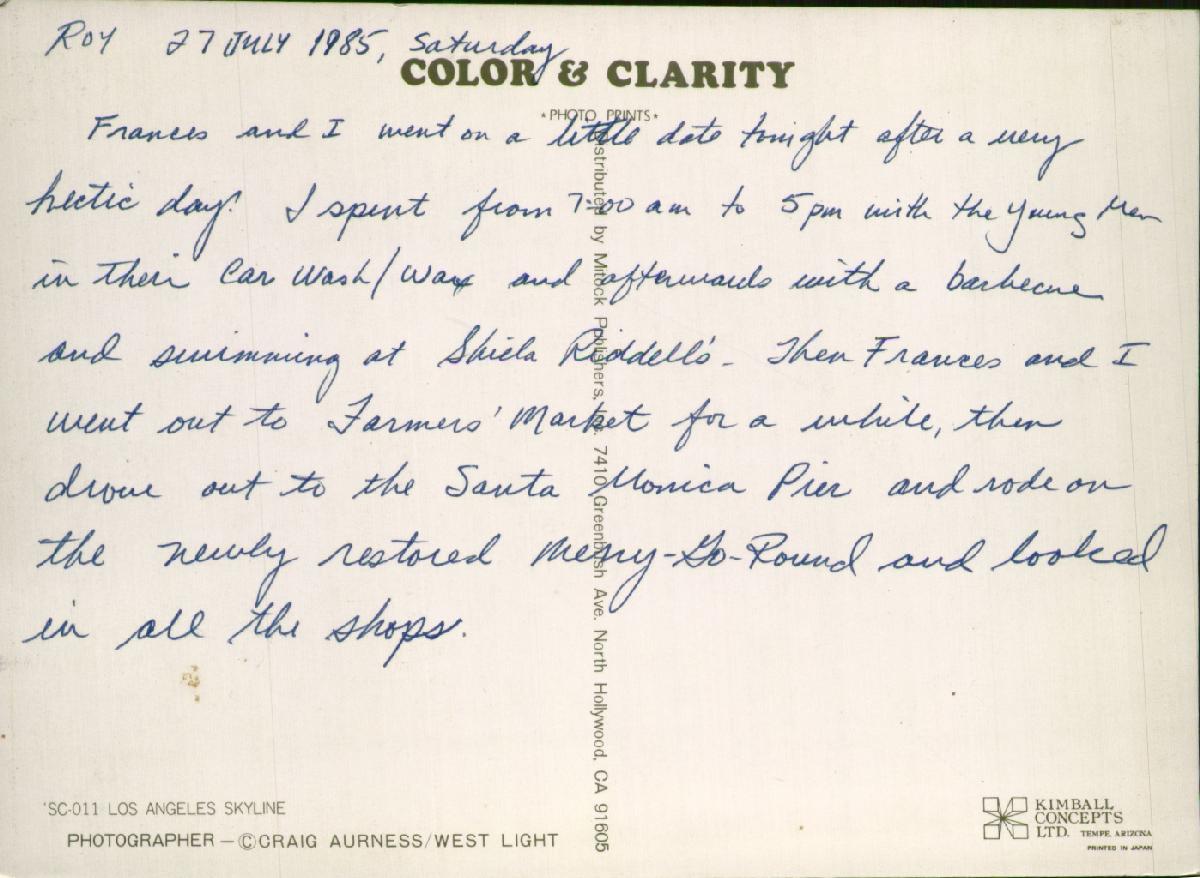 Roy 27 JULY 1985, Saturday
COLOR & CLARITY
*PHOTO PRINTS*
Frances and I went on a little date tonight after a very
hectic day! I spent from 7:00 am to 5 pm with the Young Men
in their Car Wash/Wax and afterwards with a barbecue
and swimming at Shiela Riddell's. Then Frances and I
went out to Farmers' Market for a while, then
drove out to the Santa Monica Pier and rode on
the newly restored Merry-Go-Round and looked
in all the shops.
Distributed by Mitock Publishers, Inc. 7410 Greenbush Ave. North Hollywood, CA 91605
SC-011 LOS ANGELES SKYLINE
PHOTOGRAPHER – ©CRAIG AURNESS/WEST LIGHT
KIMBALL
CONCEPTS
LTD. TEMPE, ARIZONA
PRINTED IN JAPAN